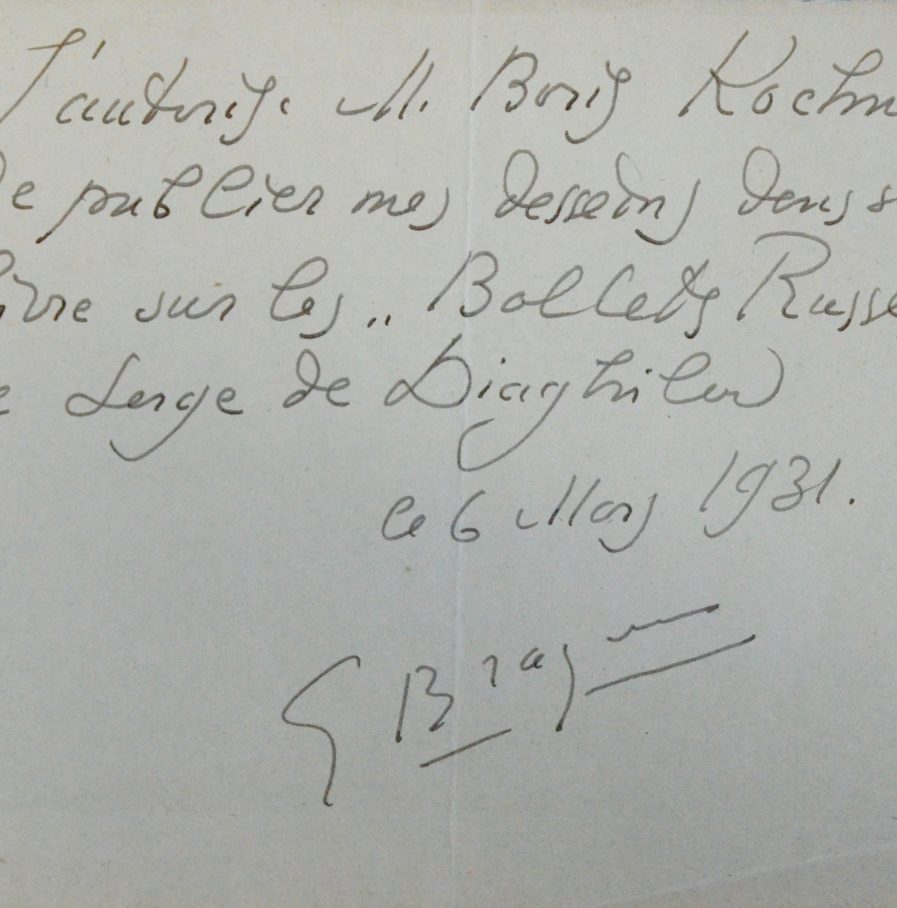 J'autorise M. Boris Kochn
de publier mes dessins dans s
livre sur les „ Ballets Russe
e Serge de Diaghilew
le 6 Mars 1931.
G Braque